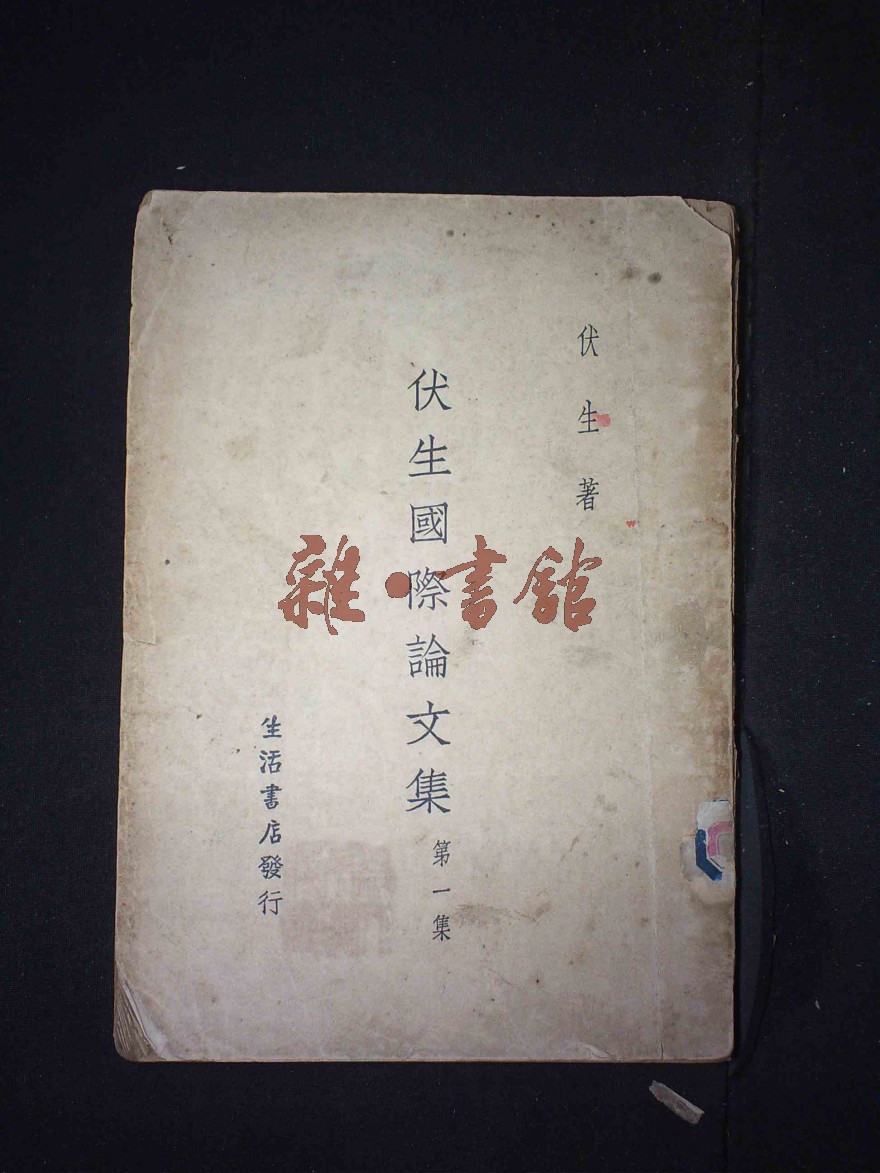 伏生著
伏生國際論文集
第一集
生活書店發行
雜·書館